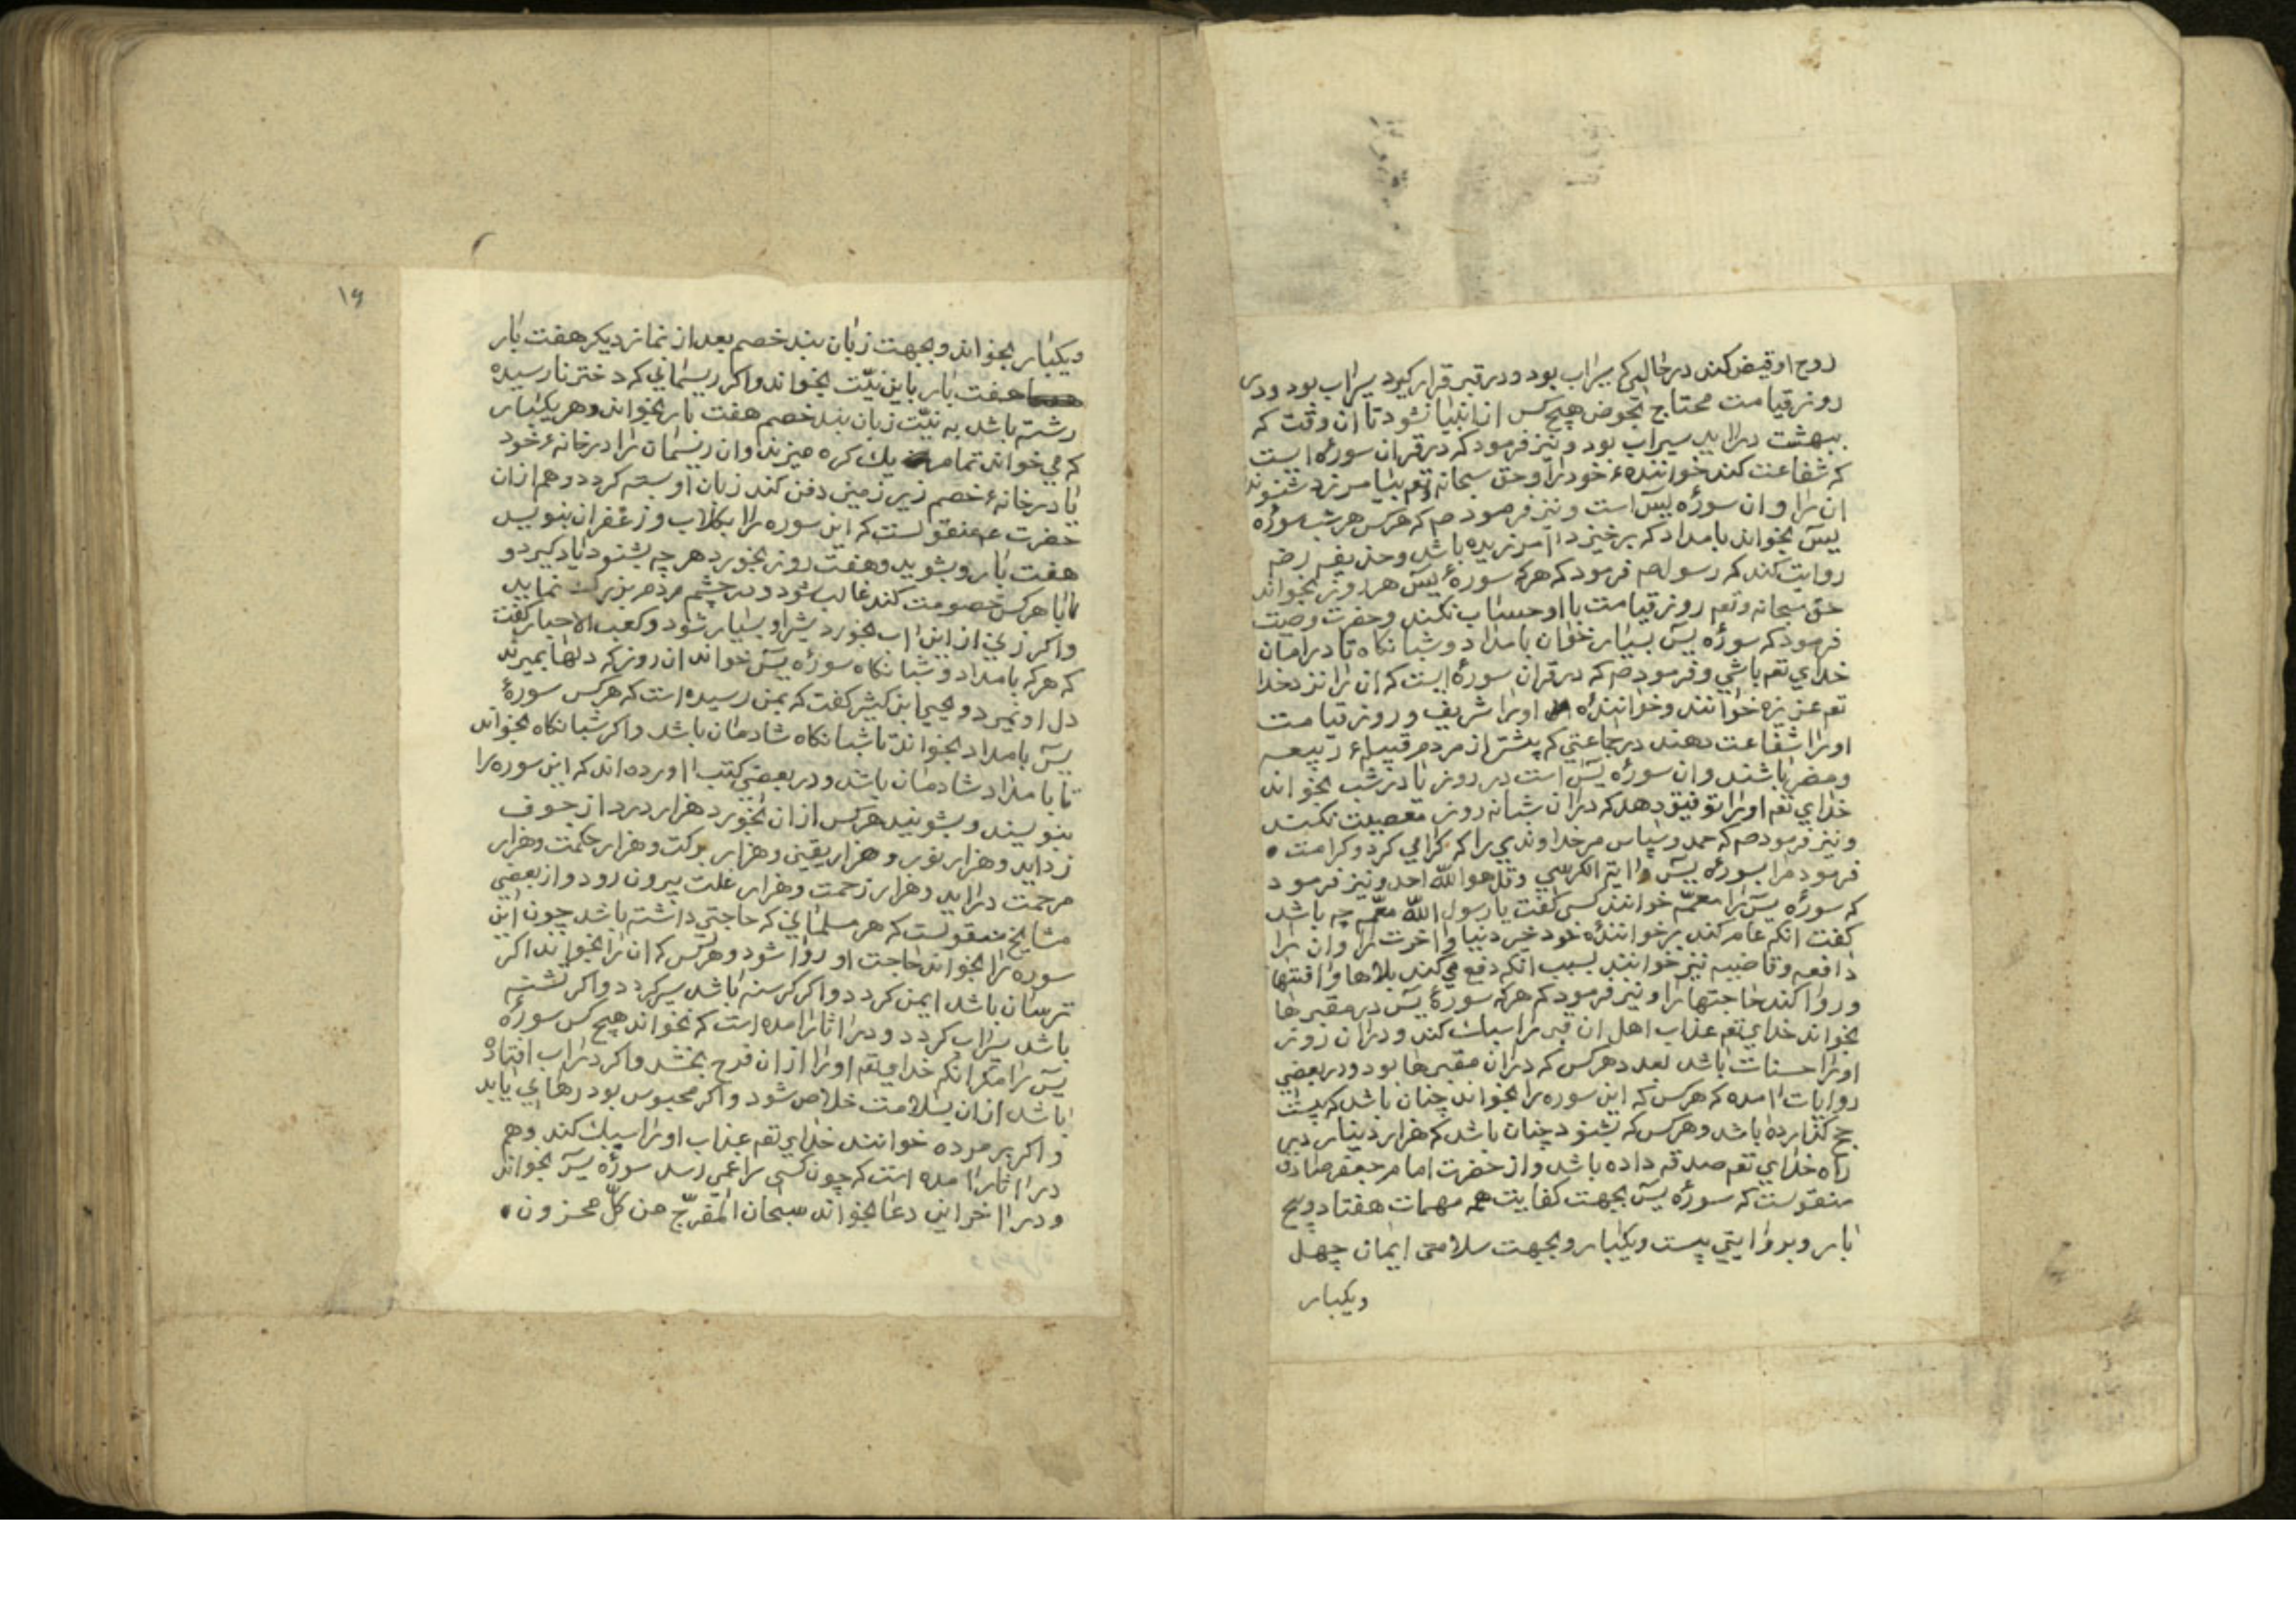 روح او قبض کند در حالی که سیراب بود و در قبر قرار گیرد سیراب بود و در
روز قیامت محتاج بحوض هیچ کس از انبیا نشود تا ان وقت که
ببهشت دراید سیراب بود و نیز فرمود که در قران سوره ایست
که شفاعت کند خواننده خود را و حق سبحانه و تعم بیامرزد شنونده
ان را و ان سورۀ یسۤ است و نیز فرمود صم که هر کس هر شب سورۀ
یسۤ بخواند بامداد که برخیزد امرزیده باشد و حذیفه رضه
روایت کند که رسول صم فرمود که هر که سورۀ یسۤ هر روز بخواند
حق سبحانه و تعم روز قیامت با او حساب نکند و حضرت وصیت
فرمود که سورۀ یسۤ بسیار خوان بامداد و شبانکاه تا در امان
خدای تعم باشی و فرمود صم که در قران سورۀ ایست که ان را نزد خدا
تعم عزیزه خوانند و خوانندۀ او را شریف و روز قیامت
او را شفاعت دهند در جماعتی که بیشتر از مردم قبیلۀ ربیعه
و مضر باشند و ان سورۀ یسۤ است در روز یا در شب بخواند
خدای تعم او را توفیق دهد که در ان شبانه روز معصیت نکند
و نیز فرمود صم که حمد و سپاس مر خداوندی را که کرامی کرد و کرامت
فرمود مرا بسورۀ یسۤ و ایة الکرسی و قل هو الله احد و نیز فرمود
که سورۀ یسۤ را معمّه خوانند کسی کفت یا رسول الله معمّه چه باشد
کفت انکه عام کند بر خوانندۀ خود خیر دنیا و اخرت را و ان را
دافعه و قاضیه نیز خوانند بسبب انکه دفع می کند بلاها و افتها
و روا کند حاجتها را و نیز فرمود که هر که سورۀ یسۤ در مقبرها
بخواند خدای تعم عذاب اهل ان قبر را سبک کند و در ان روز
او را حسنات باشد بعدد هر کس که در ان مقبرها بود و در بعضی
روایات امده که هر کس که این سوره را بخواند چنان باشد که بیست
حج کذارده باشد و هر کس که بشنود چنان باشد که هزار دینار در
راه خدای تعم صدقه داده باشد و از حضرت امام جعفر صادق
منقولست که سورۀ یسۤ بجهت کفایت همه مهمات هفتاد و پنج
بار و بروایتی بیست و یکبار و بجهت سلامتی ایمان چهل
ویکبار
۱۶
ویکبار بخواند و بجهت زبان بند خصم بعد از نماز دیکر هفت بار
هفت بار باین نیّت بخواند و اکر ریسمانی که دختر نارسیده
رشته باشد به نیّت زبان بند خصم هفت بار بخواند و هر یکبار
که می خواند تمام یک کره میزند و ان ریسمان را در خانۀ خود
یا در خانۀ خصم زیر زمین دفن کند زبان او بسته کردد و هم از ان
حضرت عم منقولست که این سوره را بکلاب و زعفران بنویسد
هفت بار و بشوید و هفت روز بخورد هر چه بشنود یاد کیرد و
با هر کس خصومت کند غالب شود و در چشم مردم بزرک نماید
و اکر زنی از این اب بخورد شیر او بسیار شود و کعب الاحبار کفت
که هر که بامداد و شبانکاه سورۀ یسۤ خواند ان روز که دلها بمیرند
دل او نمیرد و یحیی ابن کثیر کفت که بمن رسیده است که هر کس سورۀ
یسۤ بامداد بخواند تا شبانکاه شادمان باشد و اکر شبانکاه بخواند
تا بامداد شادمان باشد و در بعضی کتب اورده اند که این سوره را
بنویسند و بشویند هر کس از ان بخورد هزار درد از جوف
زداید و هزار نور و هزار یقین و هزار برکت و هزار حکمت و هزار
مرحمت دراید و هزار زحمت و هزار علت بیرون رود و از بعضی
مشایخ منقولست که هر مسلمانی که حاجتی داشته باشد چون این
سوره را بخواند حاجت او روا شود و هر کس که ان را بخواند اکر
ترسان باشد ایمن کردد و اکر کرسنه باشد سیر کردد و اکر تشنه
باشد سیراب کردد و در اثار امده است که نخواند هیچ کس سورۀ
یسۤ را مکر انکه خدای تعم او را از ان فرح بخشد و اکر در اب افتاده
باشد از ان بسلامت خلاص شود و اکر محبوس بود رهایی یابد
و اکر بر مرده خوانند خدای تعم عذاب او را سبک کند و هم
در اثار امده است که چون کسی را غمی رسد سورۀ یسۤ بخواند
و در اخر این دعا بخواند سبحان المفرّج عن کلّ محزون